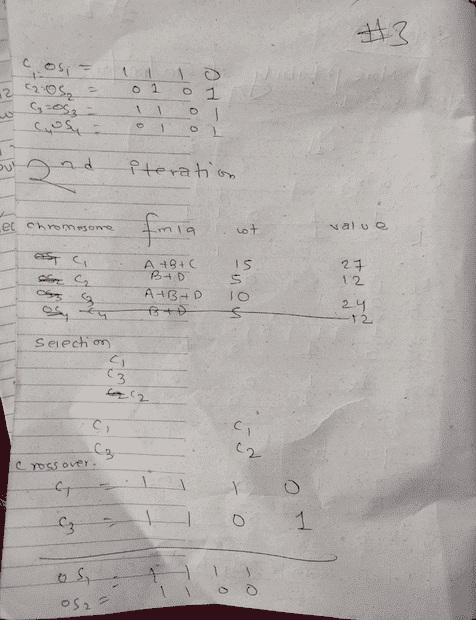 #3
C1 OS1 = 1 1 1 0
C2=OS2 = 0 1 0 1
C3=OS3 = 1 1 0 1
C4 OS4 = 0 1 0 1
2nd iteration
chromosome fmla wt value
OS1 C1 A+B+C 15 27
OS2 C2 B+D 5 12
OS3 C3 A+B+D 10 24
OS4 C4 B+D 5 12
selection
C1
C3
C2 C2
C1 C1
C3 C2
crossover.
C1 = 1 1 1 0
C3 = 1 1 0 1
OS1 = 1 1 1 1
OS2 = 1 1 0 0